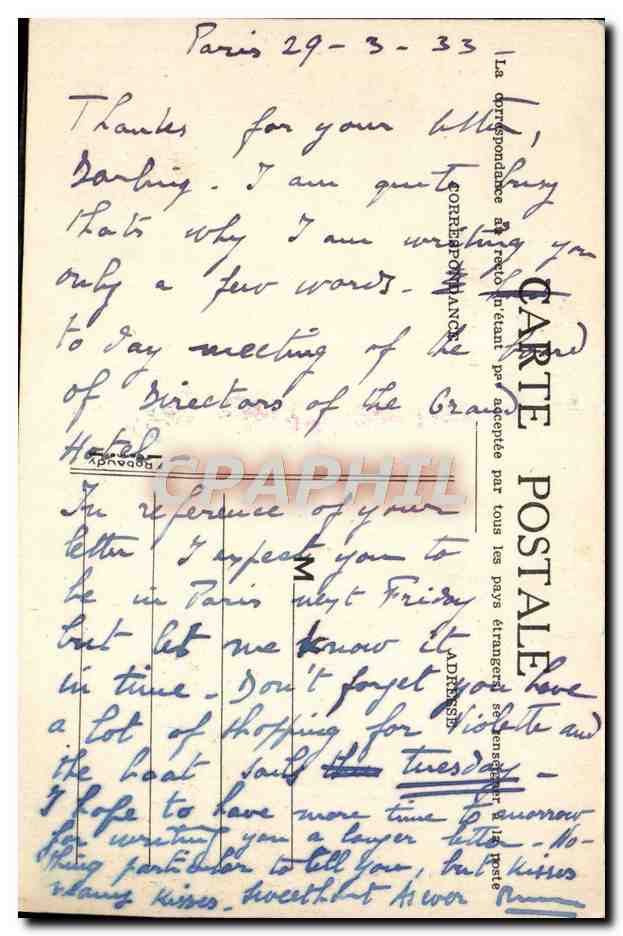 Paris 29-3-33-
Thanks for your letter,
Darling. I am quite busy
thats why I am writing you
only a few words.
to day meeting of the board
of Directors of the Grand
Hotel
In reference of your
letter I expect you to
be in Paris next Friday
but let me know it
in time - Don't forget you have
a lot of shopping for Violette and
the boat sails the Tuesday -
I hope to have more time tomorrow
for writing you a longer letter - No-
thing particular to tell you, but kisses
many kisses - sweetheart As ever
CARTE POSTALE
La correspondance au recto n'étant pas acceptée par tous les pays étrangers, se renseigner à la poste
CORRESPONDANCE
ADRESSE
M
Robaudy
CPAPHIL